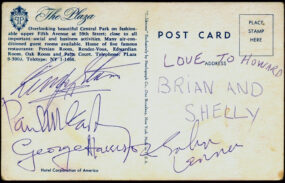 The Plaza
Overlooking beautiful Central Park on fashion-
able upper Fifth Avenue at 59th Street; close to all
important social and business activities. Many air-condi-
tioned guest rooms available. Home of five famous
restaurants: Persian Room, Rendez-Vous, Edwardian
Room, Oak Room and Palm Court. Telephone: PLaza
9-3000. Teletype: NY 1-
Ringo Starr
Paul McCartney
George Harrison
John
Lennon
Hotel Corporation of America
POST CARD
ADDRESS
PLACE
STAMP
HERE
LOVE TO HOWARD
BRIAN AND
SHELLY